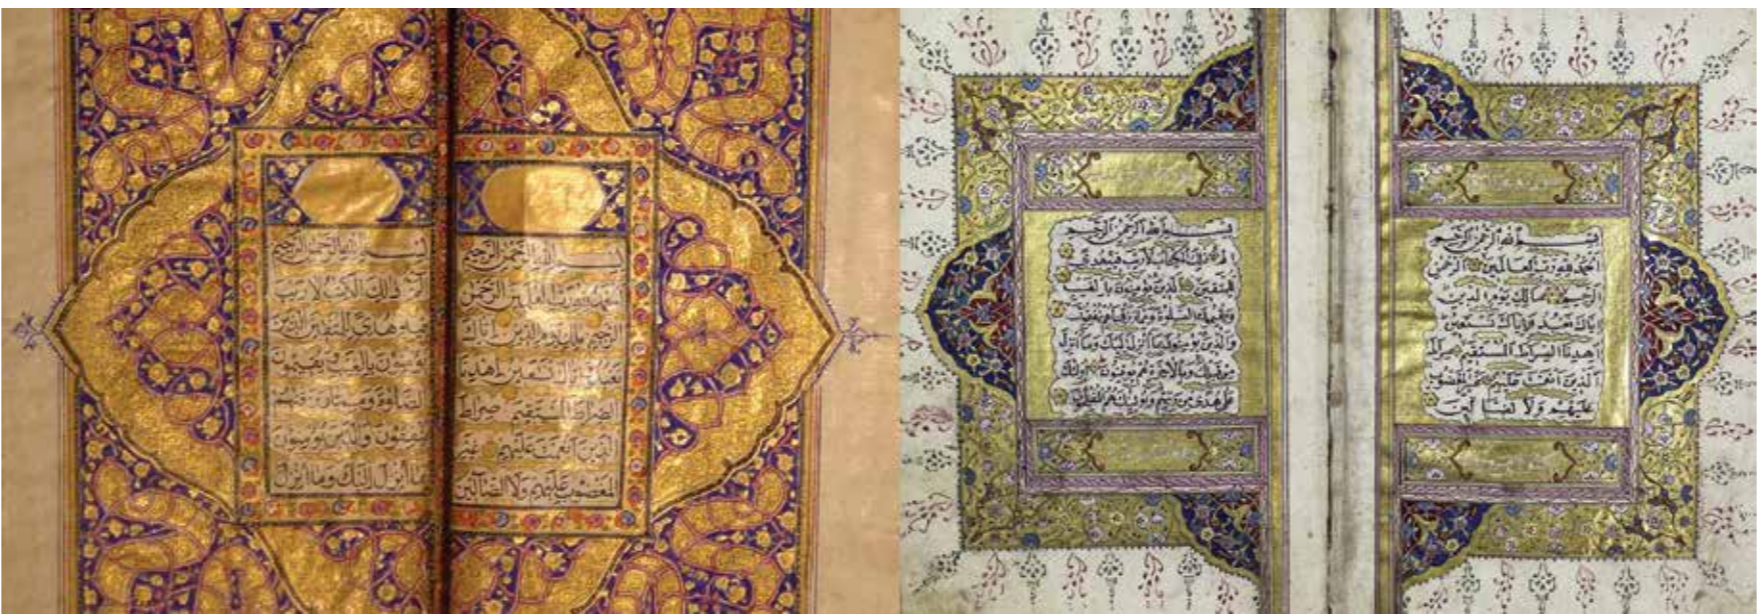 بسم الله الرحمن الرحيم
الحمد لله رب العالمين الرحمن
الرحيم مالك يوم الدين
اياك نعبد واياك نستعين
اهدنا الصراط المستقيم صراط
الذين انعمت عليهم غير المغضوب
عليهم ولا الضالين
بسم الله الرحمن الرحيم
الم ذلك الكتاب لا ريب فيه هدى
للمتقين الذين يؤمنون بالغيب
ويقيمون الصلوة ومما رزقناهم ينفقون
والذين يؤمنون بما انزل اليك وما انزل
من قبلك وبالاخرة هم يوقنون اولئك
على هدى من ربهم واولئك هم المفلحون
بسم الله الرحمن الرحيم
الحمد لله رب العالمين الرحمن
الرحيم ملك يوم الدين اياك
نعبد واياك نستعين اهدنا
الصراط المستقيم صراط
الذين انعمت عليهم غير
المغضوب عليهم ولا الضالين
بسم الله الرحمن الرحيم
الم ذلك الكتب لا ريب
فيه هدى للمتقين الذين
يؤمنون بالغيب ويقيمون
الصلوة ومما رزقنهم
ينفقون والذين يؤمنون
بما انزل اليك وما انزل